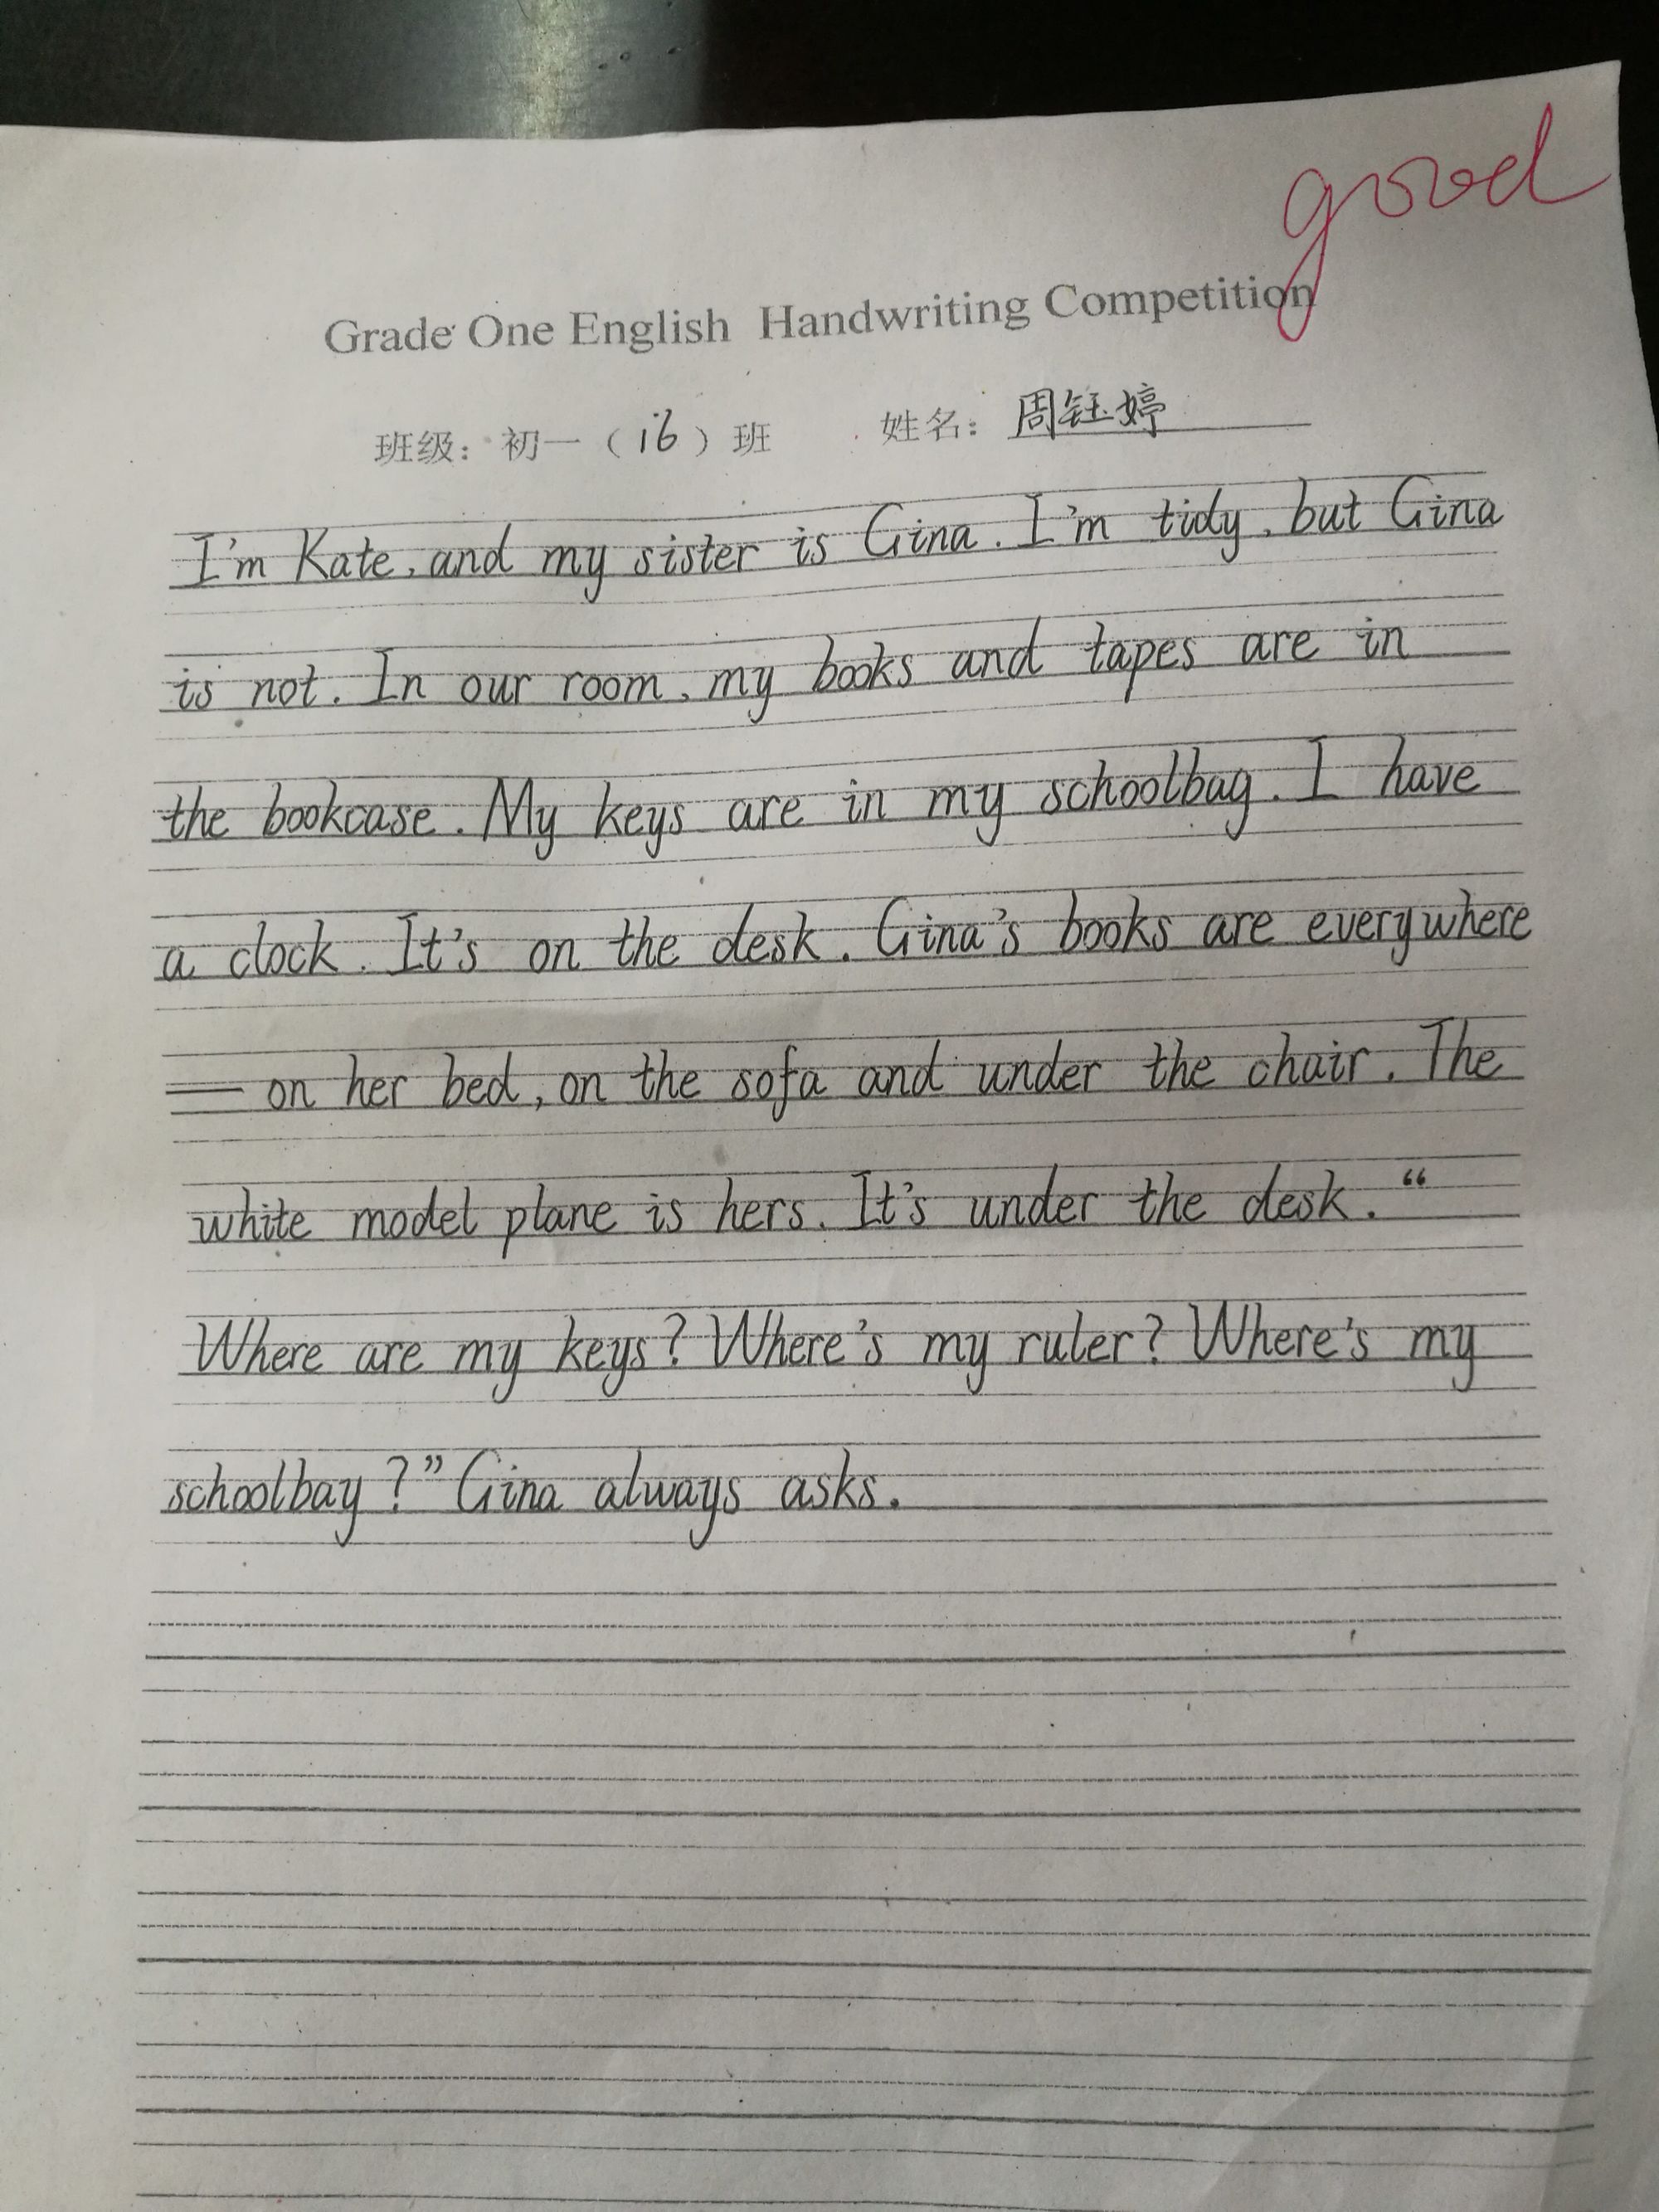 good
Grade One English Handwriting Competition
班级：初一（16）班 姓名：周钰婷
I'm Kate, and my sister is Gina. I'm tidy, but Gina
is not. In our room, my books and tapes are in
the bookcase. My keys are in my schoolbag. I have
a clock. It's on the desk. Gina's books are everywhere
— on her bed, on the sofa and under the chair. The
white model plane is hers. It's under the desk. “
Where are my keys? Where's my ruler? Where's my
schoolbay?” Gina always asks.